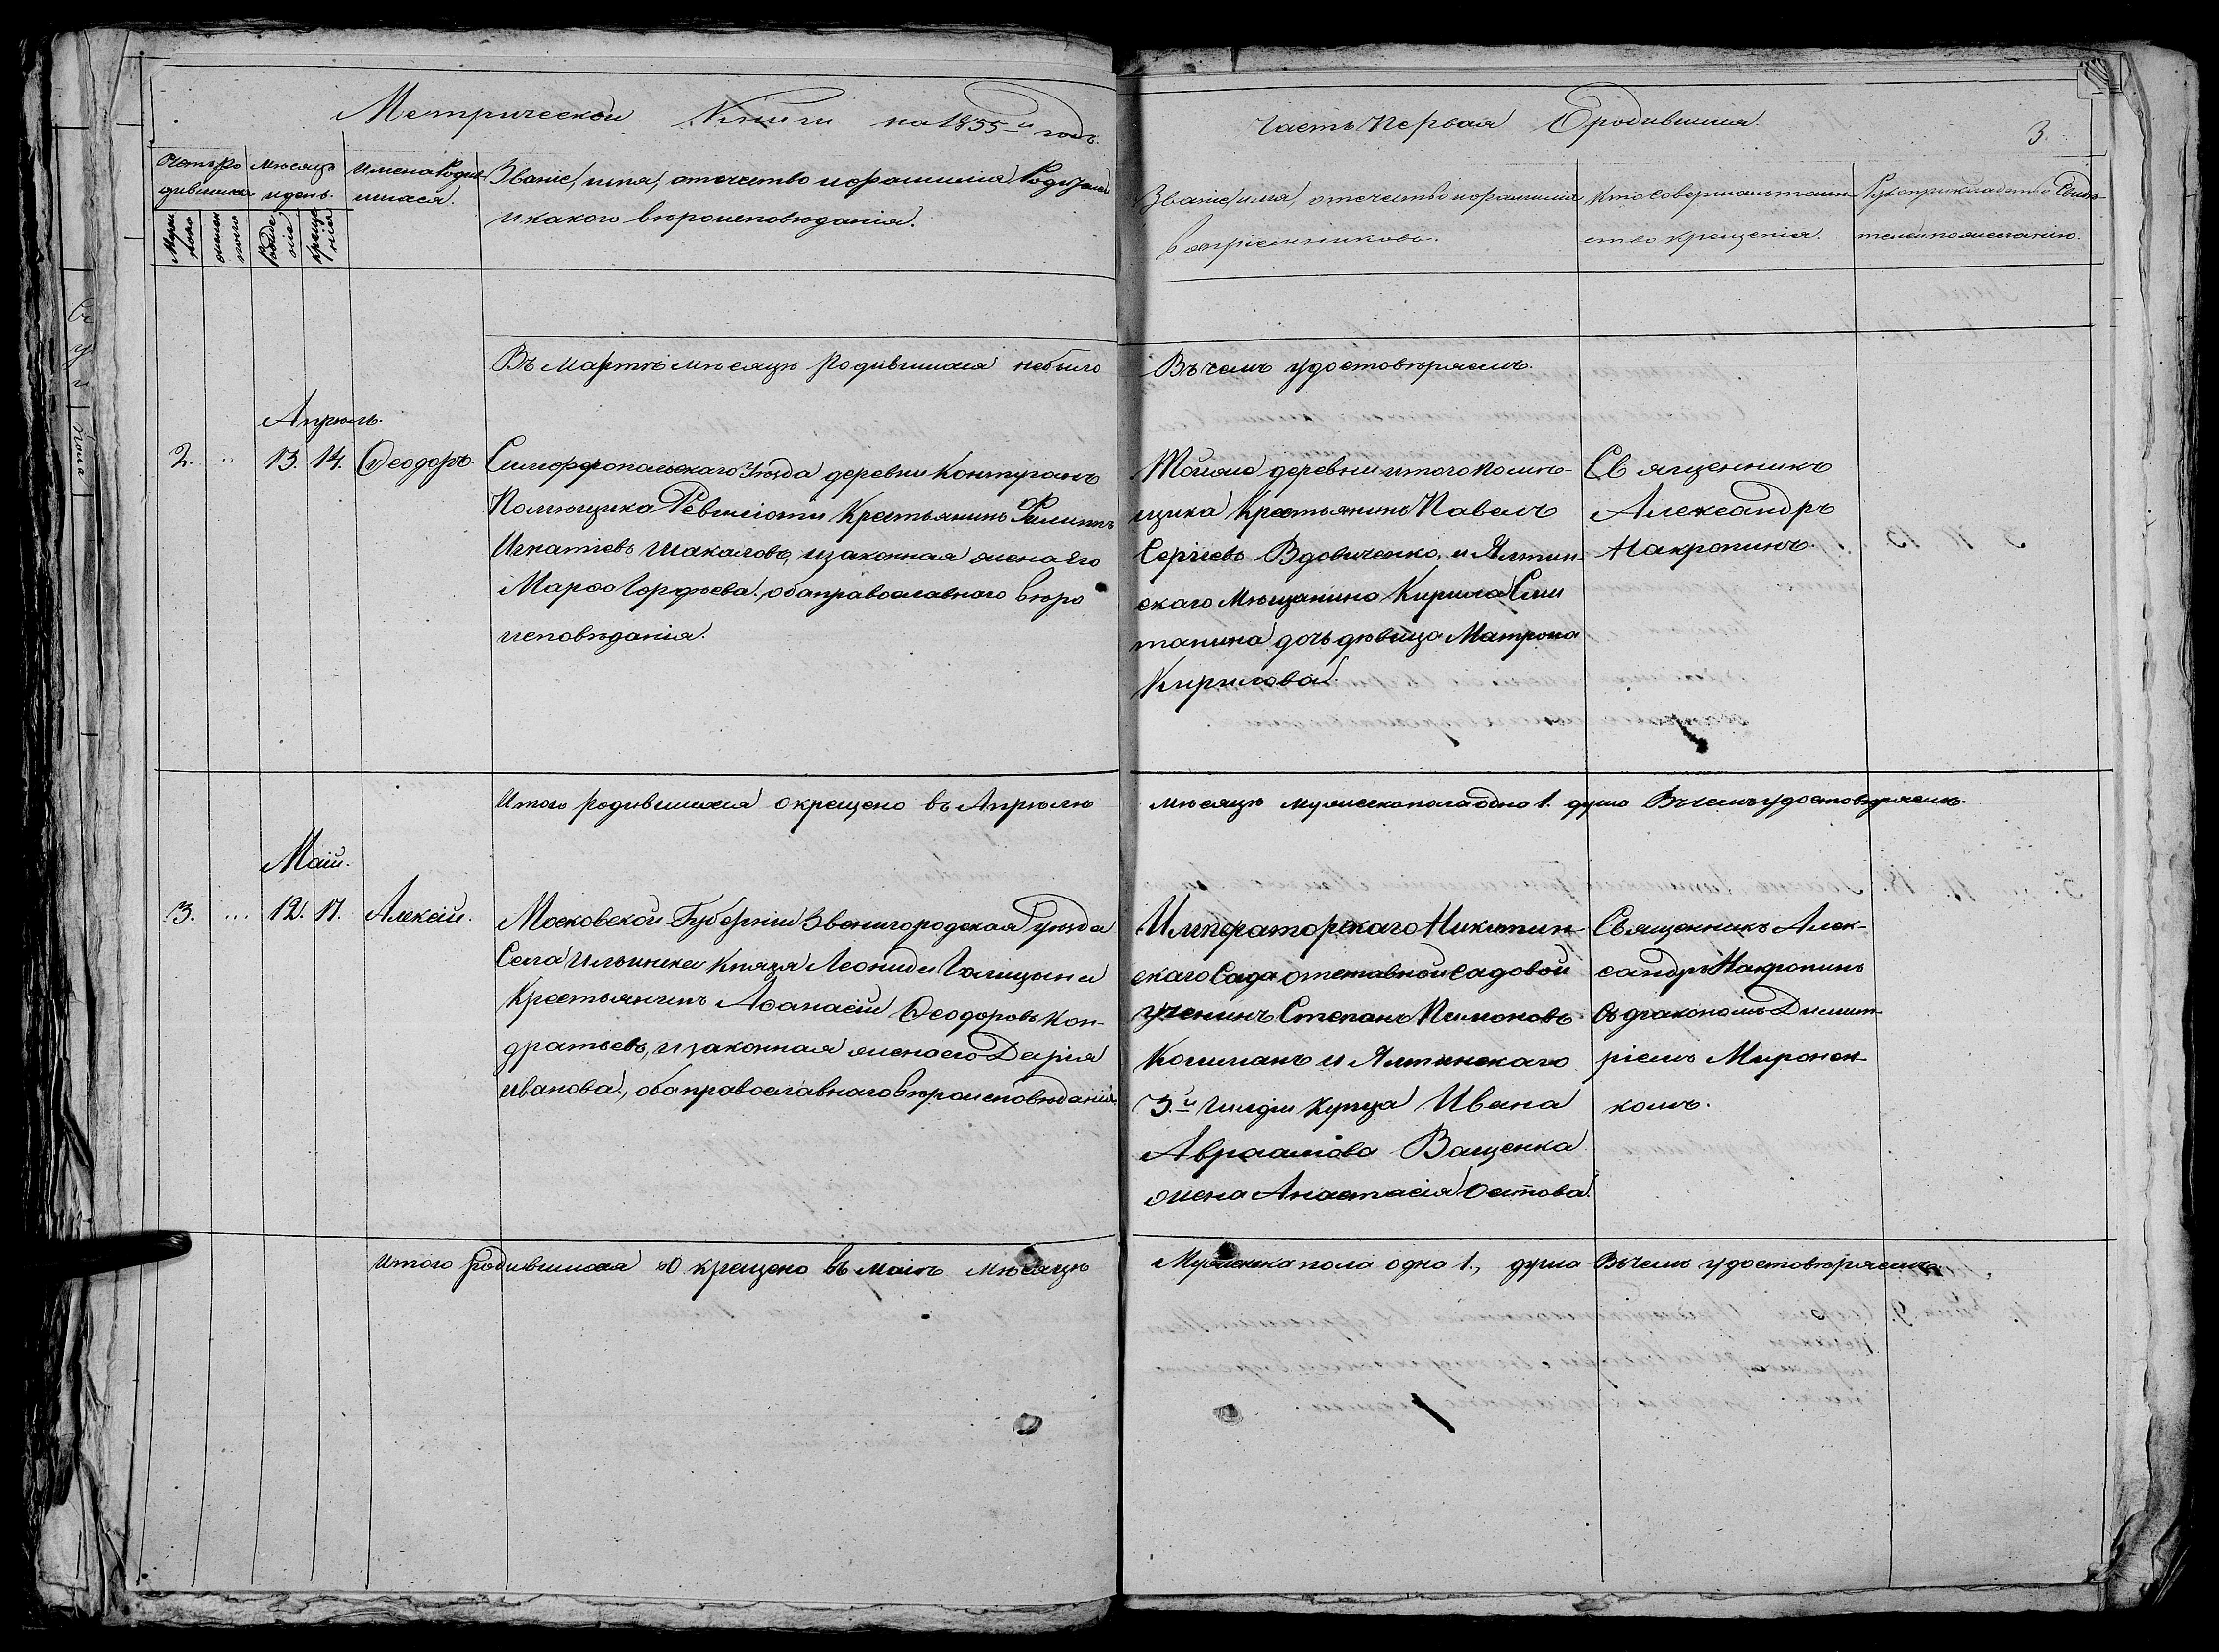 Метрической Книги на 1855-й годъ.
Часть Первая О родившихся.
3
Счетъ ро
дившихся
Муже
ска
женск
наго
Мѣсяцъ
и день.
Рожде
ніе
креще
нія
Имена Родив
шихся.
Званіе, имя, отечество и фамилія Родителей
и какого вѣроисповѣданія.
Званіе, имя, отечество и фамилія
воспріемниковъ.
Кто совершалъ таин
ство крещенія.
Рукоприкладство Свидѣ-
телей по желанію.
Въ Мартѣ мѣсяцѣ родившихся небыло
Въ чемъ удостовѣряемъ.
Апрѣль.
2. .. 13. 14. Ѳеодоръ.
Симферопольскаго Уѣзда деревни Контуганъ
Помѣщика Ревеліоти Крестьянинъ Филиппъ
Игнатіевъ Шакаловъ, и законная жена Его
Марфа Гордѣева, оба православнаго вѣро
исповѣданія.
Тойже деревни и того Помѣ-
щика Крестьянинъ Павелъ
Сергіевъ Вдовиченко, и Ялтин-
скаго Мѣщанина Кирила
танина дочь дѣвица Матрона
Кирилова.
Священникъ
Александръ
Накропинъ.
Итого родившихся окрещено въ Апрѣлѣ
мѣсяцѣ мужеска пола одна 1. душа Въ чемъ удостовѣряемъ.
Май.
3. ... 12. 17. Алексій.
Московской Губерніи Звенигородскаго Уѣзда
Села Ильинска Князя Леонида Голицына
Крестьянинъ Аѳанасій Ѳеодоровъ Кон-
дратьевъ, и законная жена его Дарія
Иванова, оба православнаго вѣроисповѣданія.
Императорскаго Никитин
скаго Сада отставной садовой
ученикъ Степанъ Пимоновъ
Кошманъ и Ялтинскаго
3.й Гилдіи Купца Ивана
Авраамова Ващенка
жена Анастасія Осипова.
Священникъ Алек-
сандръ Накропинъ
Съ діакономъ Димит-
ріемъ Миронен-
комъ.
Итого родившихся Окрещено въ Маіѣ Мѣсяцѣ
Мужеска пола одна 1., душа Въ чемъ удостовѣряемъ.